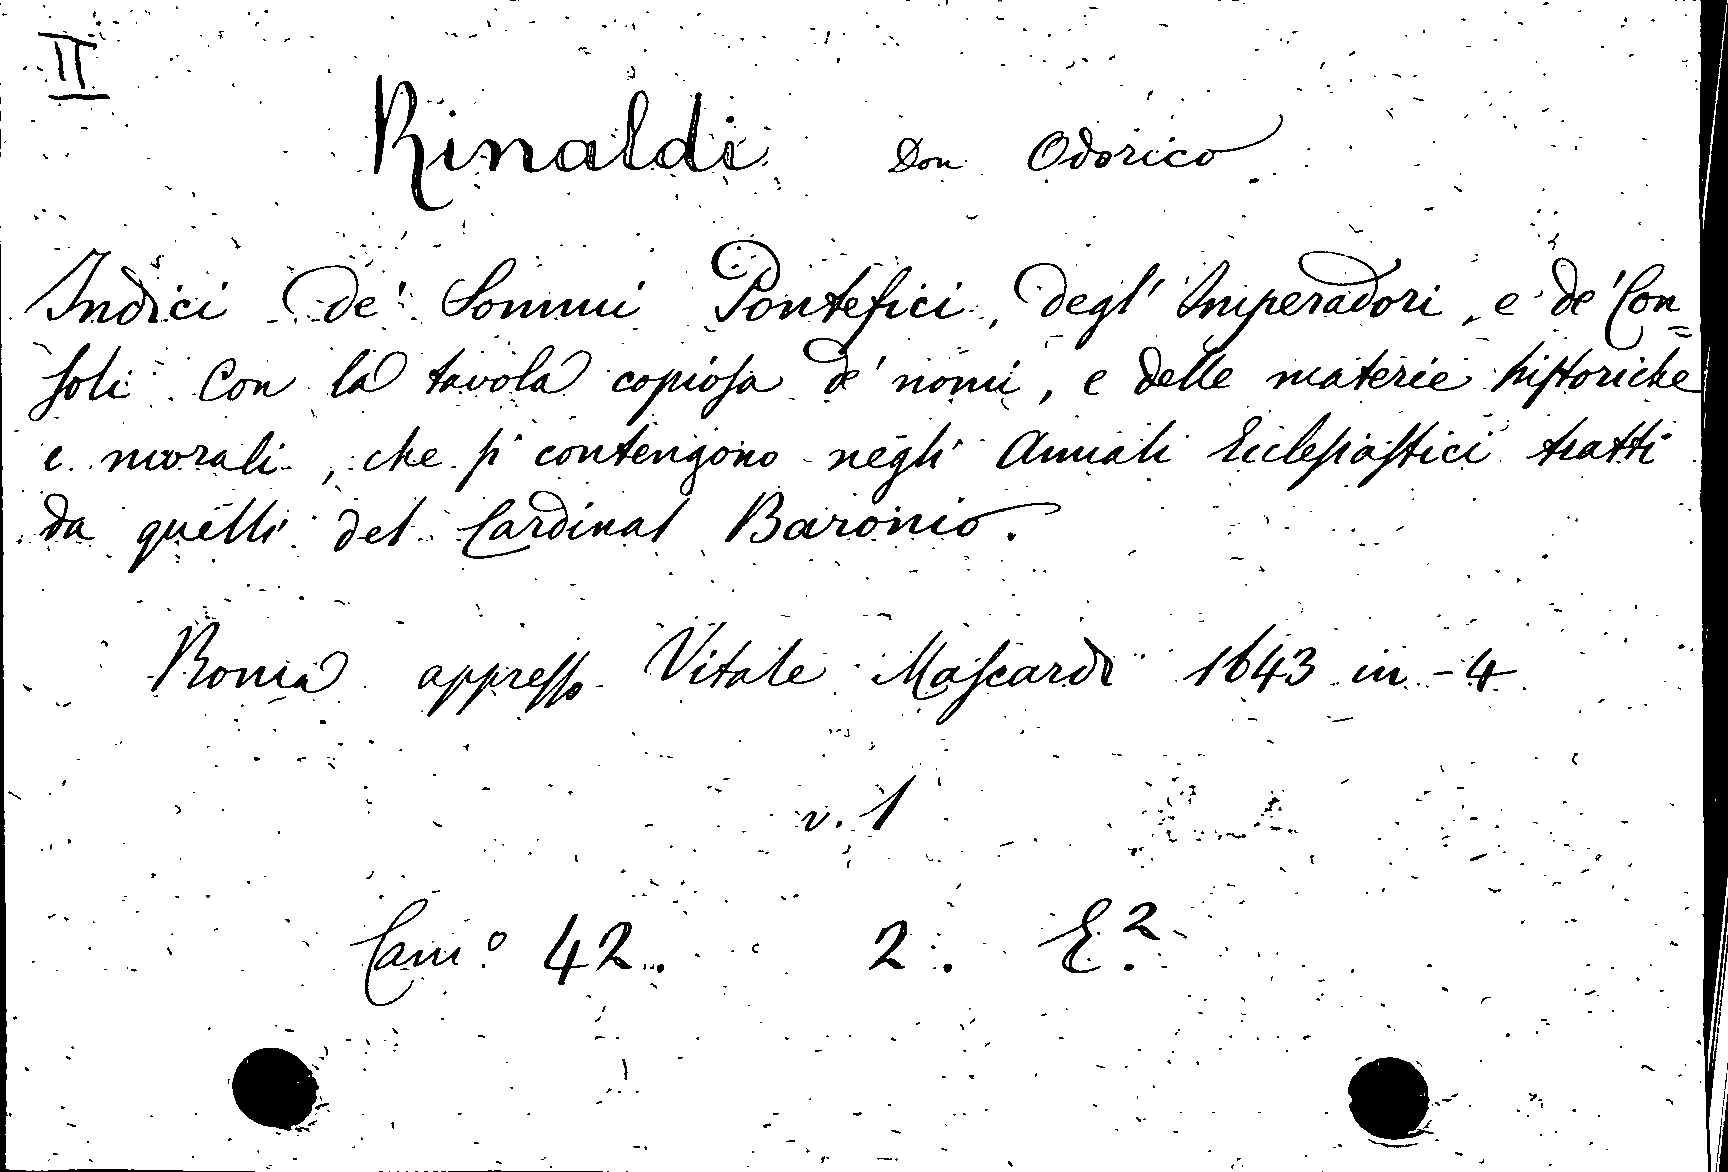 II
Rinaldi Don Odorico
Indici de' Sommi Pontefici, degl' Imperadori, e de' Con=
soli con la tavola copiosa de' nomi, e delle materie historiche
e morali, che si contengono negli Annali Eclesiastici tratti
da quelli del Cardinal Baronio.
Roma appresso Vitale Mascardi 1643 in-4
v. 1
Cam.º 42. 2. E.²